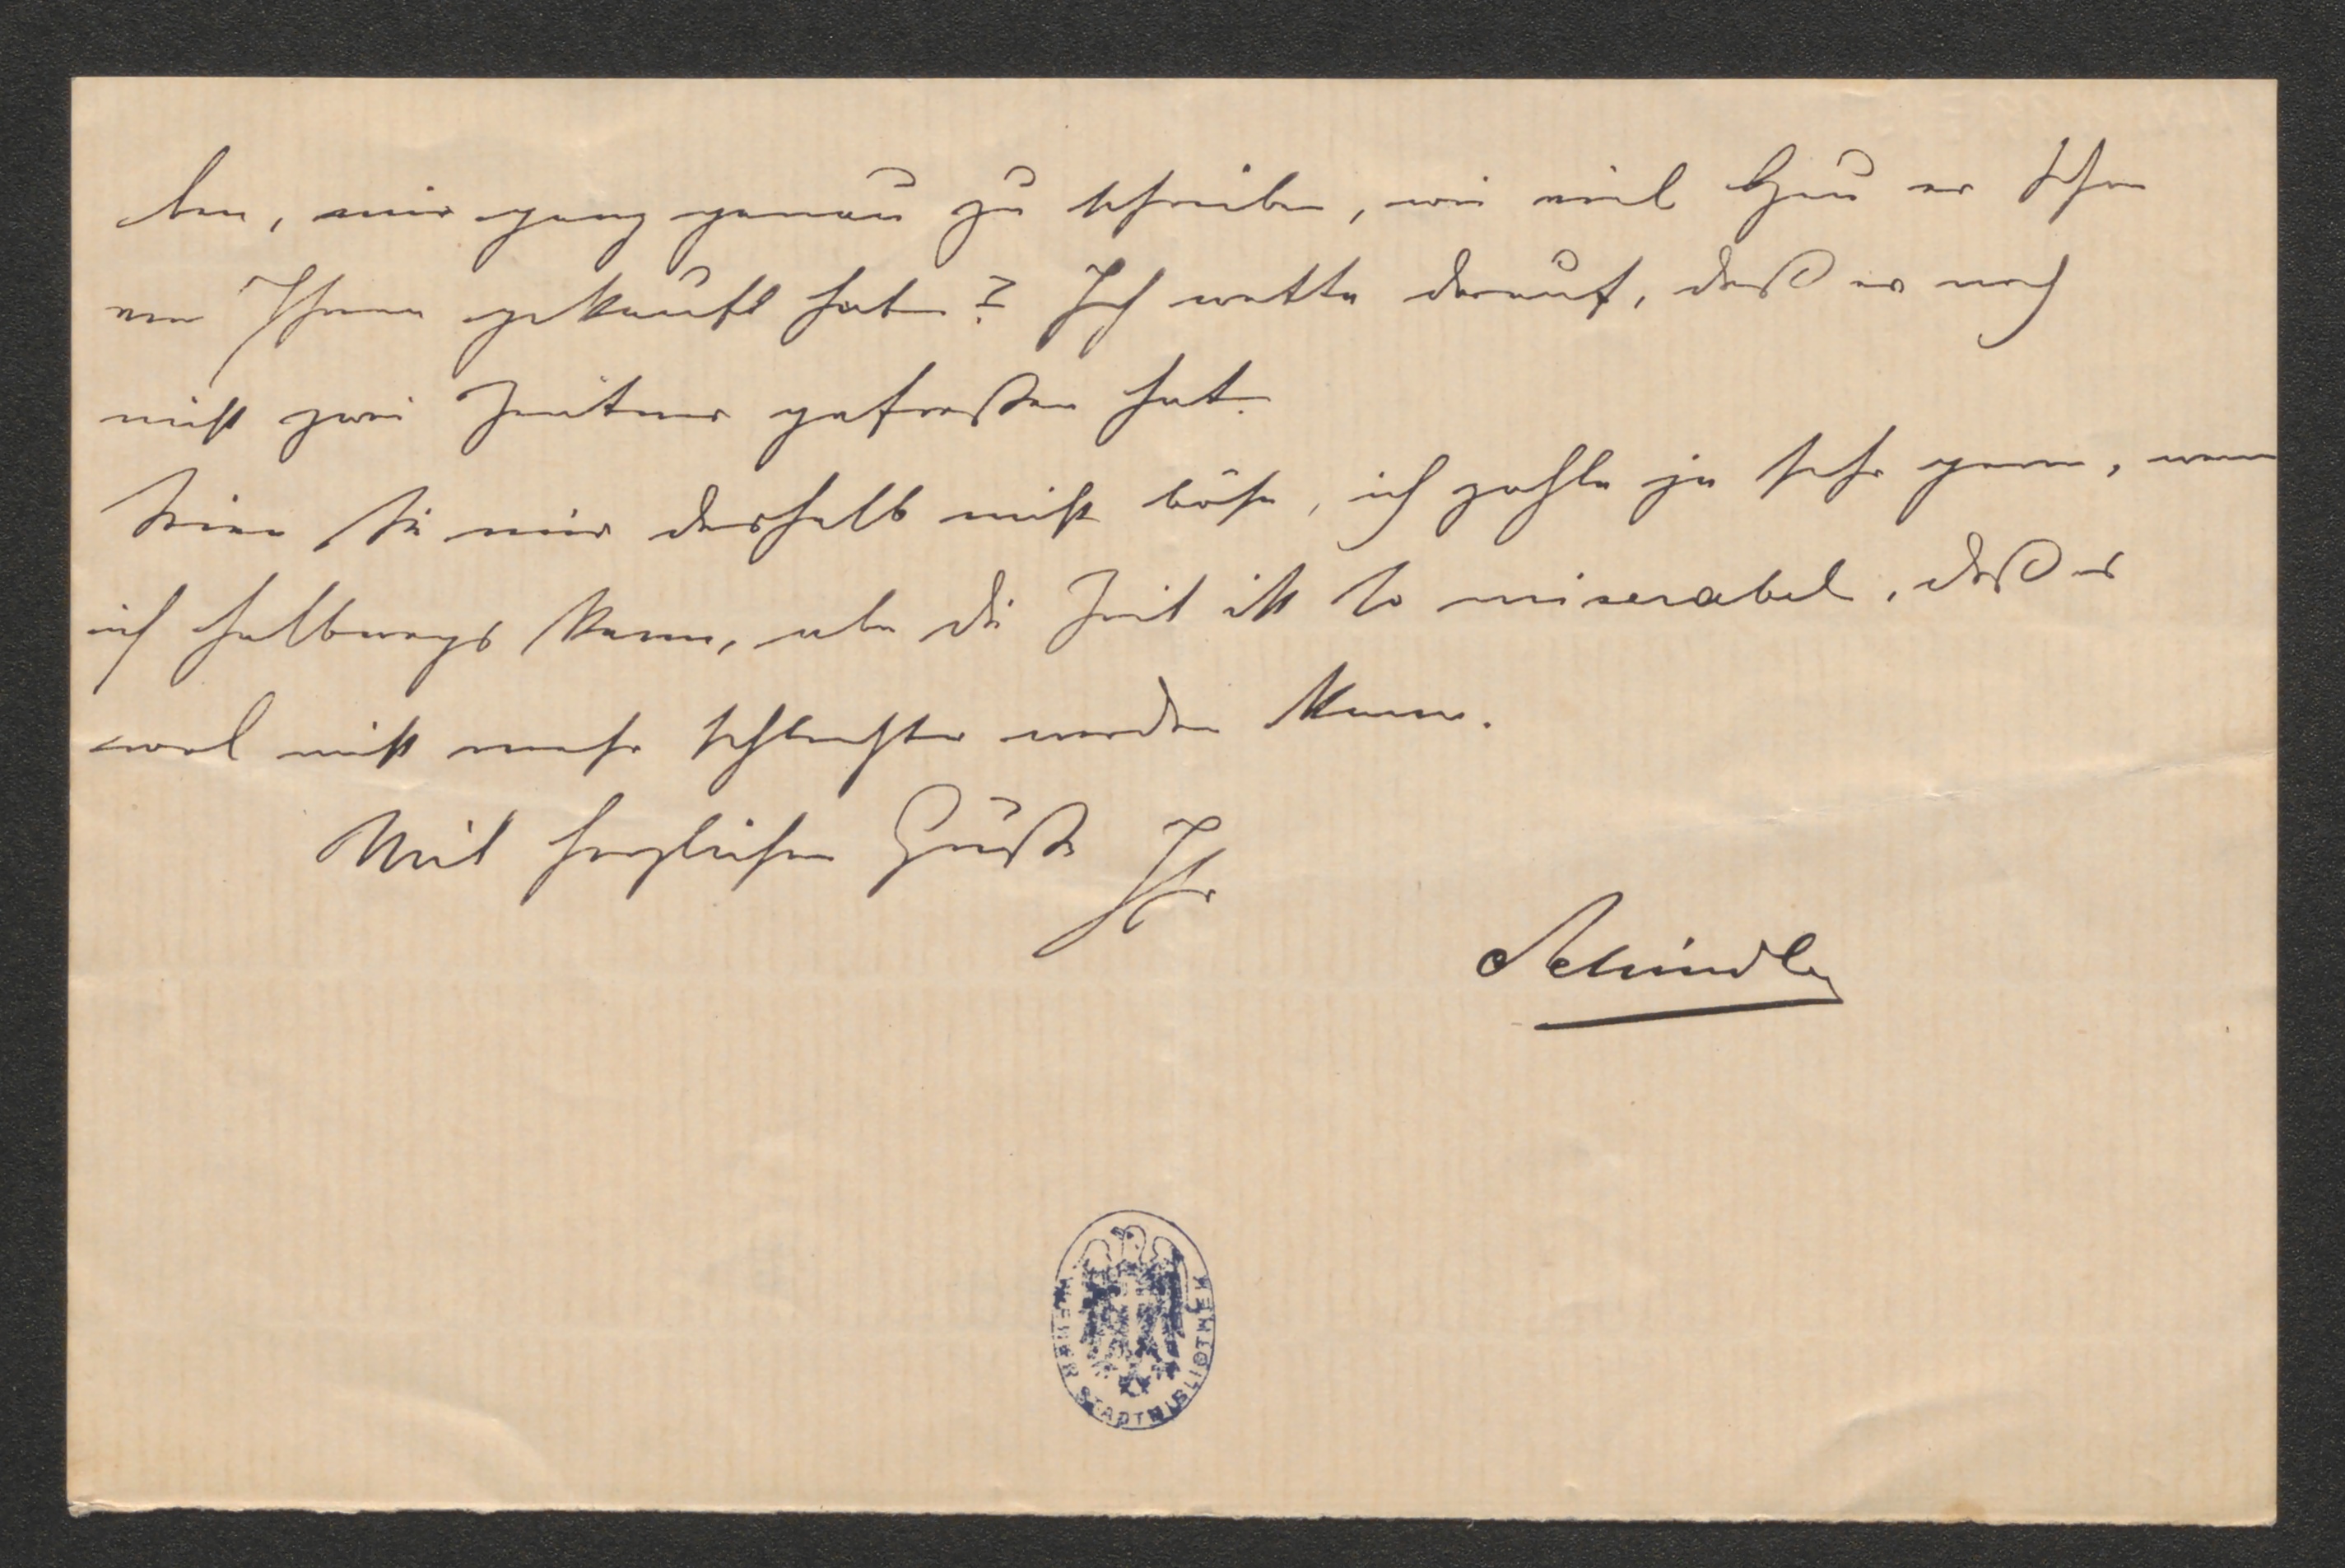 ben, mir ganz genau zu schreiben, wie viel Heu er schon
von Ihnen gekauft hat? Ich wette darauf, daß er noch
nicht zwei Zentner gefreßen hat.
Seien Sie mir deshalb nicht böse, ich zahle ja sehr gern, wenn
ich halbwegs kann, aber die Zeit ist so miserabel, daß es
wol nicht mehr schlechter werden kann.
Mit herzlichen Grüße Ihr
Schindler
WIENER STADTBIBLIOTHEK